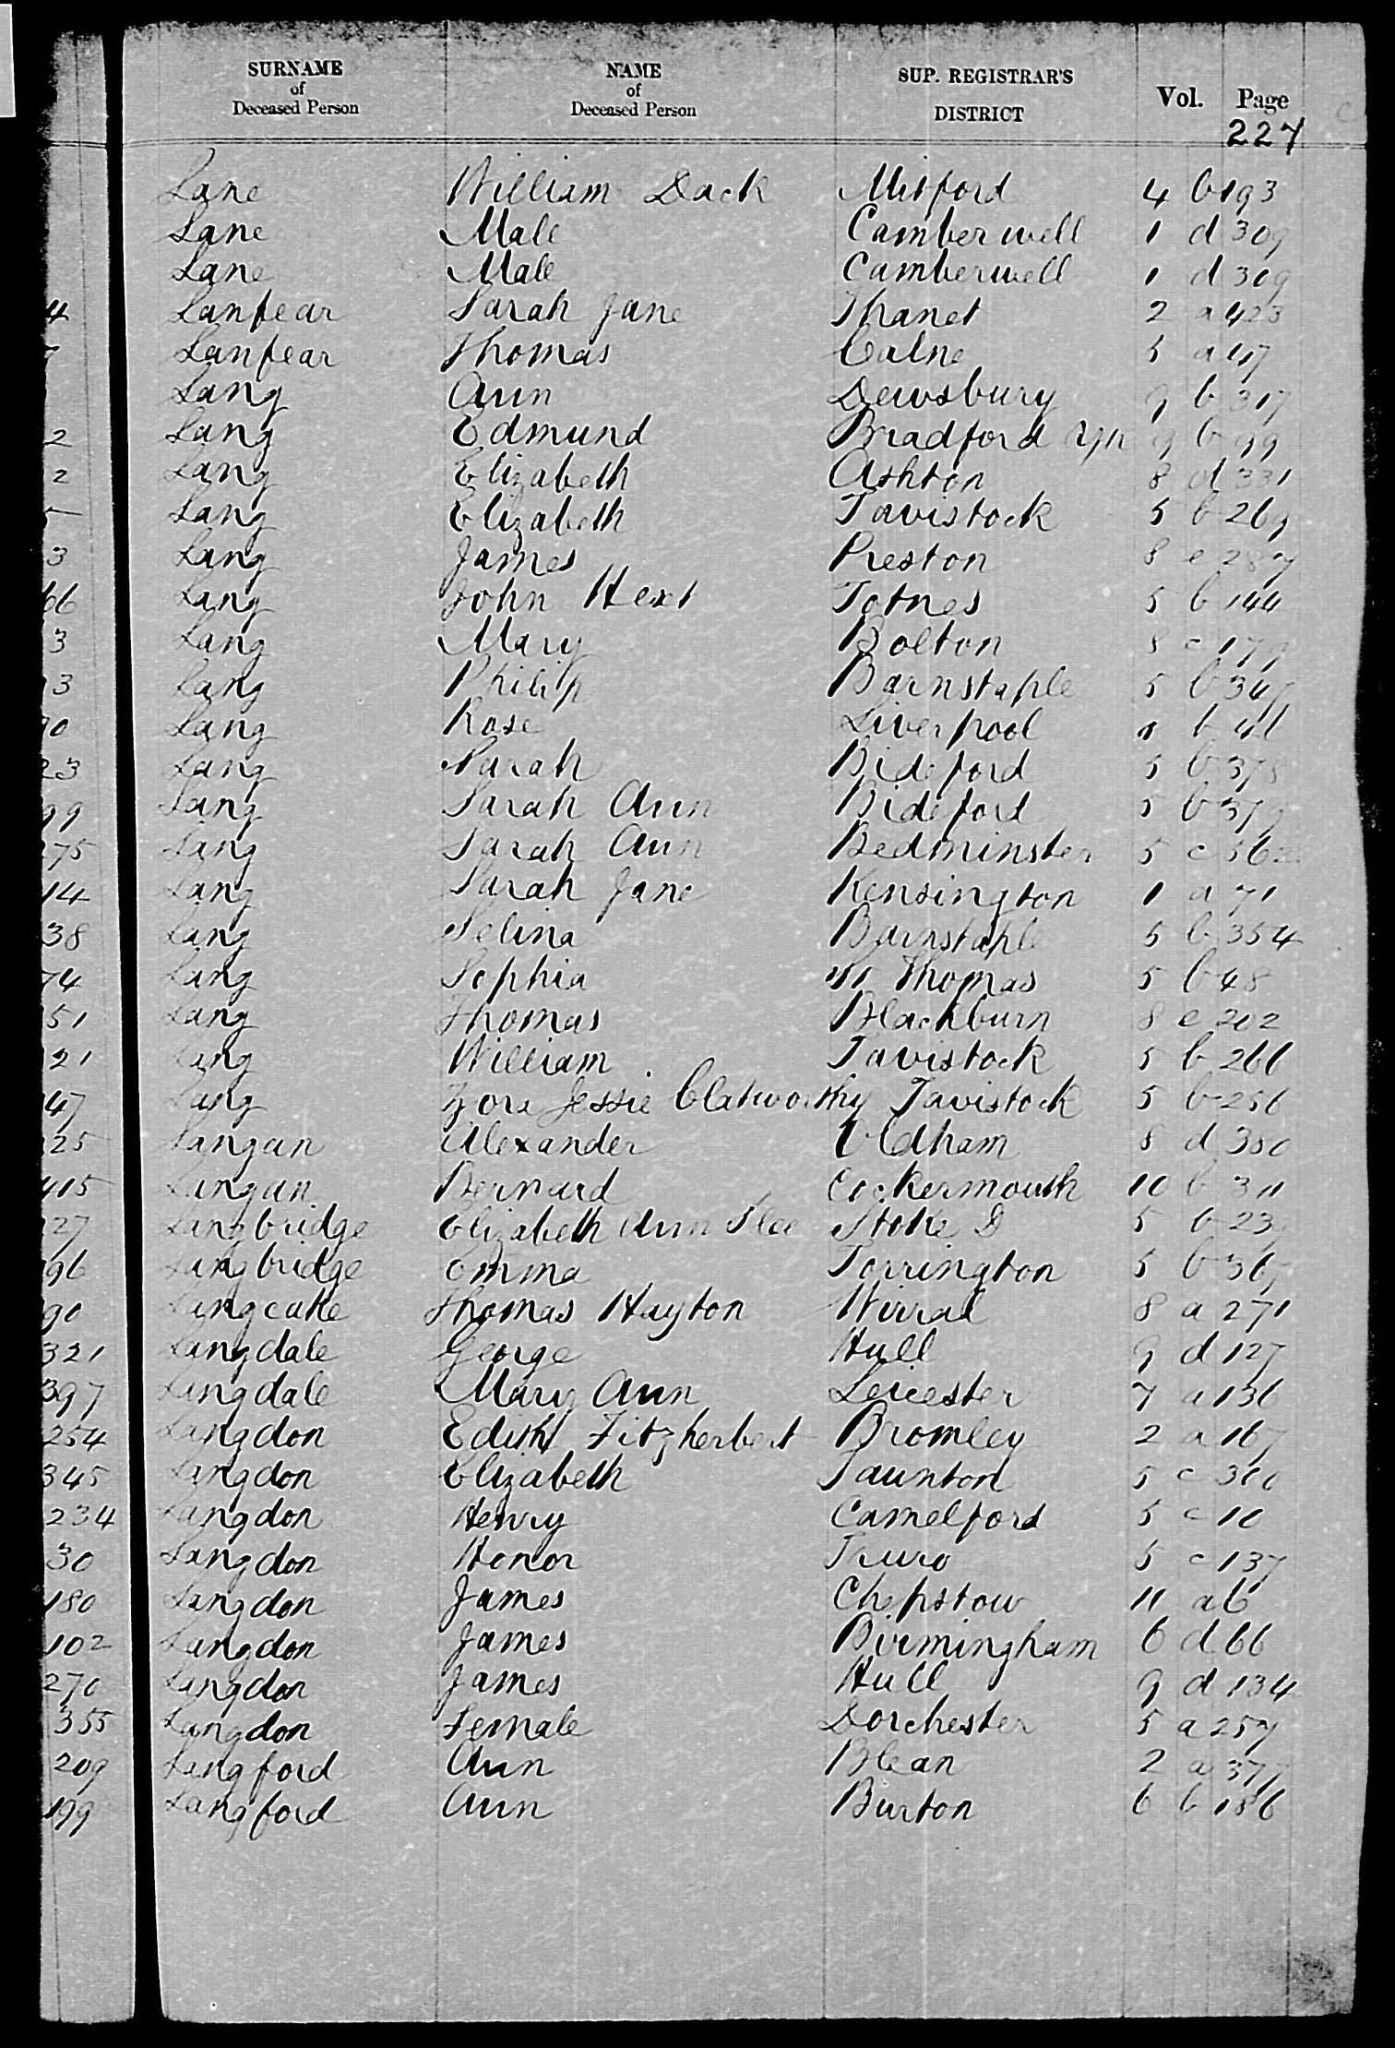 SURNAME of Deceased Person NAME of Deceased Person SUP. REGISTRAR'S DISTRICT Vol. Page
227
Lane William Dack Mitford 4 b 193
Lane Male Camberwell 1 d 309
Lane Male Camberwell 1 d 309
4 Lanfear Sarah Jane Thanet 2 a 423
Lanfear Thomas Calne 5 a 117
Lang Ann Dewsbury 9 b 317
2 Lang Edmund Bradford Yn 9 b 99
2 Lang Elizabeth Ashton 8 d 331
5 Lang Elizabeth Tavistock 5 b 269
3 Lang James Preston 8 e 287
66 Lang John Hext Totnes 5 b 144
3 Lang Mary Bolton 8 c 179
3 Lang Philip Barnstaple 5 b 347
90 Lang Rose Liverpool 8 b 41
23 Lang Sarah Bideford 5 b 378
99 Lang Sarah Ann Bideford 5 b 379
275 Lang Sarah Ann Bedminster 5 c 562
14 Lang Sarah Jane Kensington 1 a 71
38 Lang Selina Barnstaple 5 b 354
74 Lang Sophia St Thomas 5 b 48
51 Lang Thomas Blackburn 8 e 202
21 Lang William Tavistock 5 b 266
47 Lang Jessie Clatworthy Tavistock 5 b 256
25 Langan Alexander Oldham 8 d 350
415 Langan Bernard Cockermouth 10 b 311
27 Langbridge Elizabeth Ann Slee Stoke D 5 b 23
96 Langbridge Emma Torrington 5 b 365
90 Langcake Thomas Hayton Wirral 8 a 271
321 Langdale George Hull 9 d 127
397 Langdale Mary Ann Leicester 7 a 136
254 Langdon Edith Fitzherbert Bromley 2 a 167
345 Langdon Elizabeth Taunton 5 c 300
234 Langdon Henry Camelford 5 c 10
30 Langdon Honor Truro 5 c 137
180 Langdon James Chepstow 11 a 6
102 Langdon James Birmingham 6 d 66
270 Langdon James Hull 9 d 134
355 Langdon Female Dorchester 5 a 257
209 Langford Ann Blean 2 a 377
199 Langford Ann Burton 6 b 186